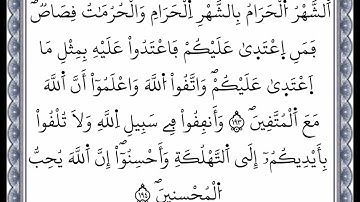 اَ۬لشَّهْرُ اُ۬لْحَرَامُ بِالشَّهْرِ اِ۬لْحَرَامِ وَالْحُرُمَٰتُ قِصَاصٞۖ
فَمَنِ اِ۪عْتَد۪يٰ عَلَيْكُمْ فَاعْتَدُواْ عَلَيْهِ بِمِثْلِ مَا
اَ۪عْتَد۪يٰ عَلَيْكُمْۖ وَاتَّقُواْ اُ۬للَّهَ وَاعْلَمُوٓاْ أَنَّ اَ۬للَّهَ
مَعَ اَ۬لْمُتَّقِينَۖ ١٩٣ وَأَنفِقُواْ فِے سَبِيلِ اِ۬للَّهِ وَلَا تُلْقُواْ
بِأَيْدِيكُمُۥٓ إِلَي اَ۬لتَّهْلُكَةِ وَأَحْسِنُوٓاْۖ إِنَّ اَ۬للَّهَ يُحِبُّ
اُ۬لْمُحْسِنِينَۖ ١٩٤